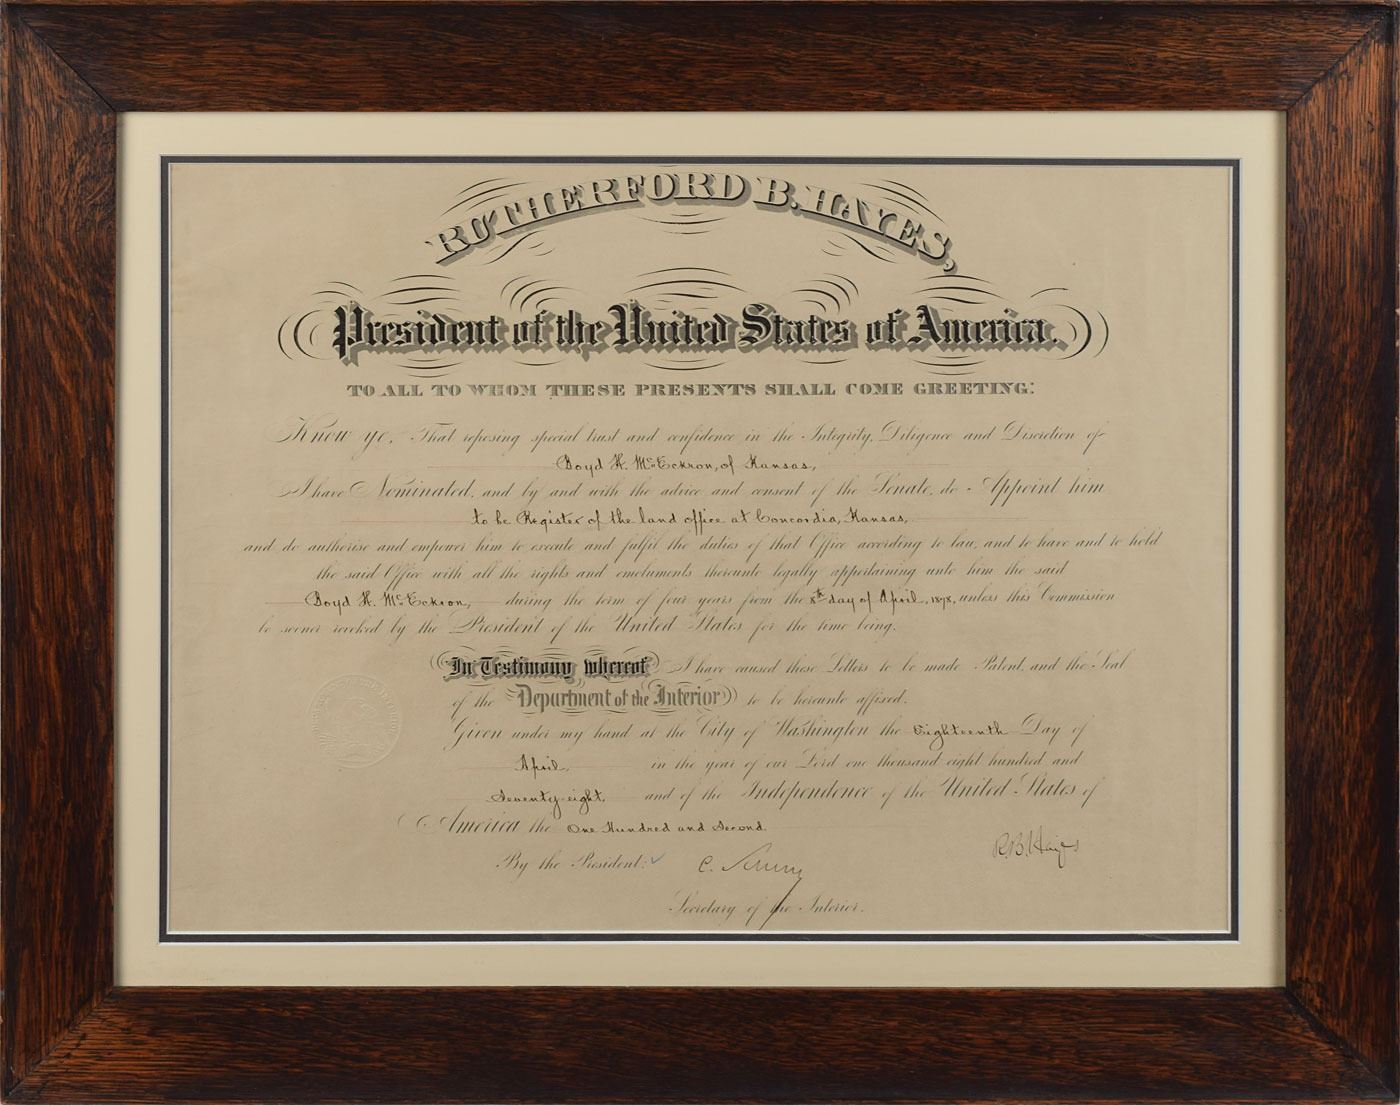 RUTHERFORD B. HAYES,
President of the United States of America.
TO ALL TO WHOM THESE PRESENTS SHALL COME GREETING:
Know ye, That reposing special trust and confidence in the Integrity, Diligence and Discretion of
Boyd H. McEckron, of Kansas,
I have Nominated, and by and with the advice and consent of the Senate, do Appoint him
to be Register of the land office at Concordia, Kansas,
and do authorise and empower him to execute and fulfil the duties of that Office according to law, and to have and to hold
the said Office with all the rights and emoluments thereunto legally appertaining unto him the said
Boyd H. McEckron, during the term of four years from the 8th day of April, 1878, unless this Commission
be sooner revoked by the President of the United States for the time being.
In Testimony whereof I have caused these Letters to be made Patent, and the Seal
of the Department of the Interior to be hereunto affixed.
Given under my hand at the City of Washington the Eighteenth Day of
April, in the year of our Lord one thousand eight hundred and
Seventy-eight, and of the Independence of the United States of
America the One Hundred and Second.
R.B. Hayes
By the President: C. Schurz
Secretary of the Interior.